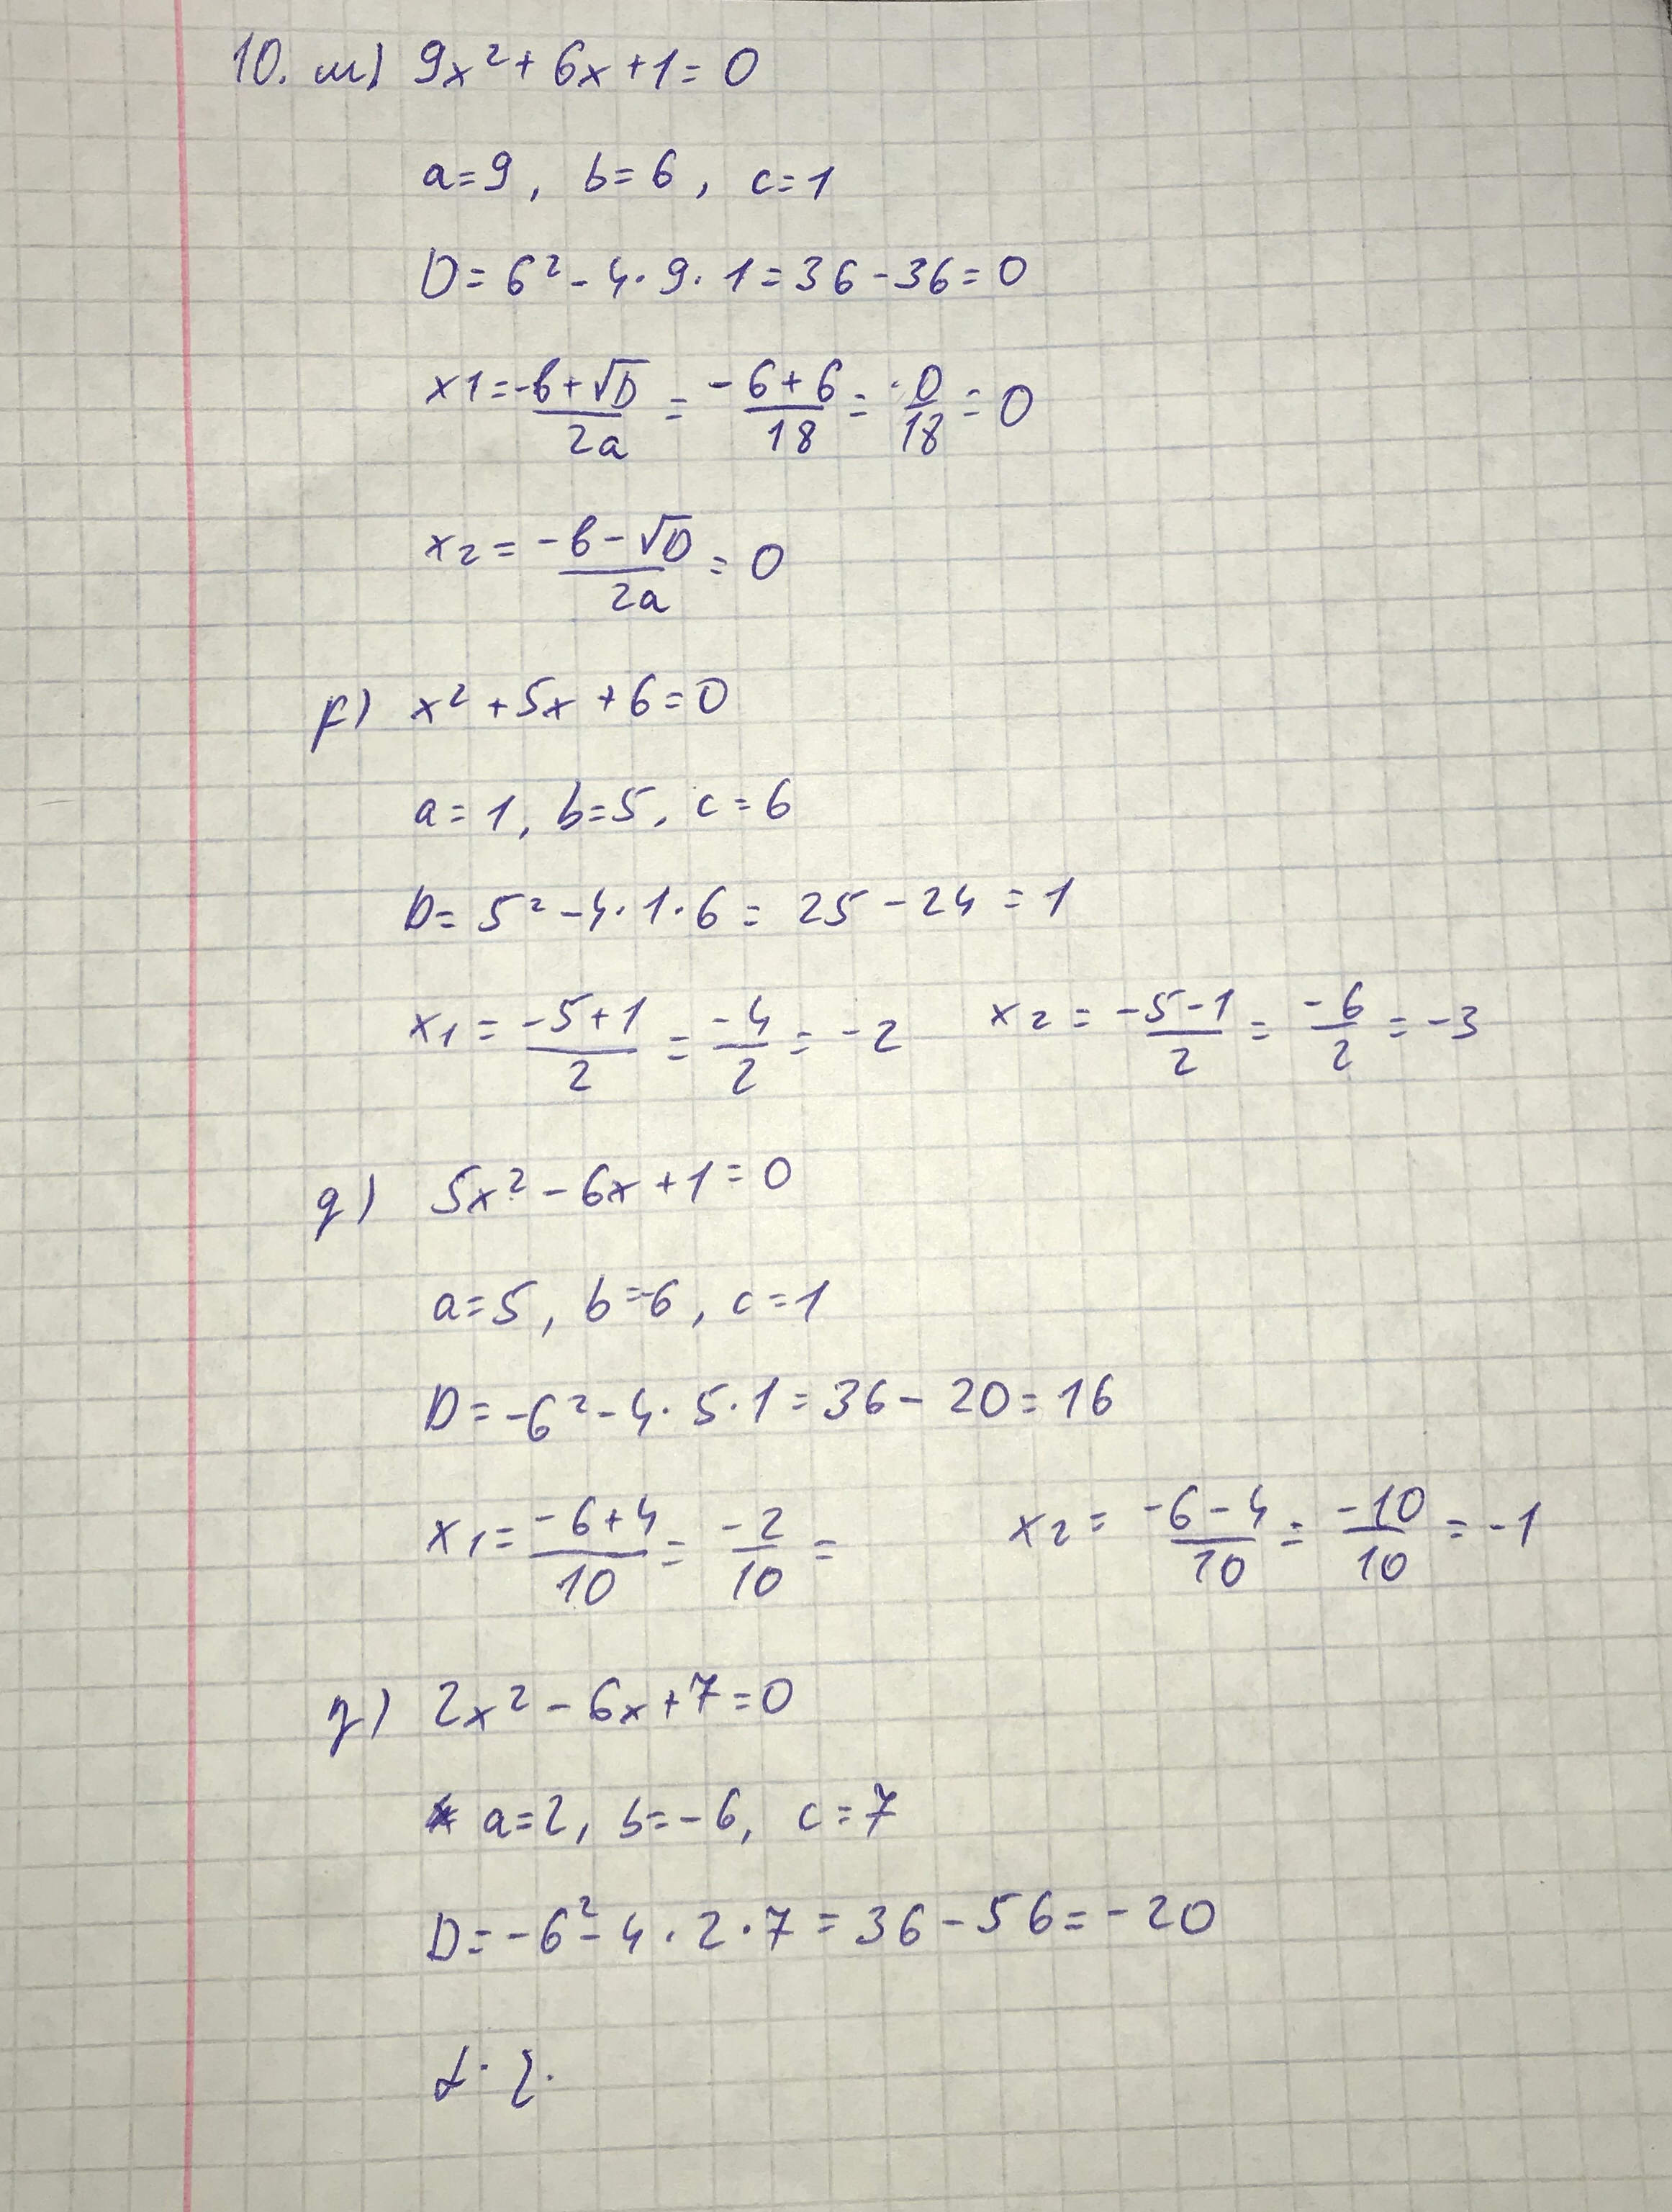 10. m) 9x² + 6x + 1 = 0
a = 9, b = 6, c = 1
D = 6² - 4 · 9 · 1 = 36 - 36 = 0
x1 = (-b + √D)/2a = (-6 + 6)/18 = 0/18 = 0
x₂ = (-b - √D)/2a = 0
) x² + 5x + 6 = 0
a = 1, b = 5, c = 6
D = 5² - 4 · 1 · 6 = 25 - 24 = 1
x₁ = (-5 + 1)/2 = -4/2 = -2 x₂ = (-5 - 1)/2 = -6/2 = -3
g) 5x² - 6x + 1 = 0
a = 5, b = -6, c = 1
D = -6² - 4 · 5 · 1 = 36 - 20 = 16
x₁ = (-6 + 4)/10 = -2/10 = x₂ = (-6 - 4)/10 = -10/10 = -1
) 2x² - 6x + 7 = 0
a = 2, b = -6, c = 7
D = -6² - 4 · 2 · 7 = 36 - 56 = -20